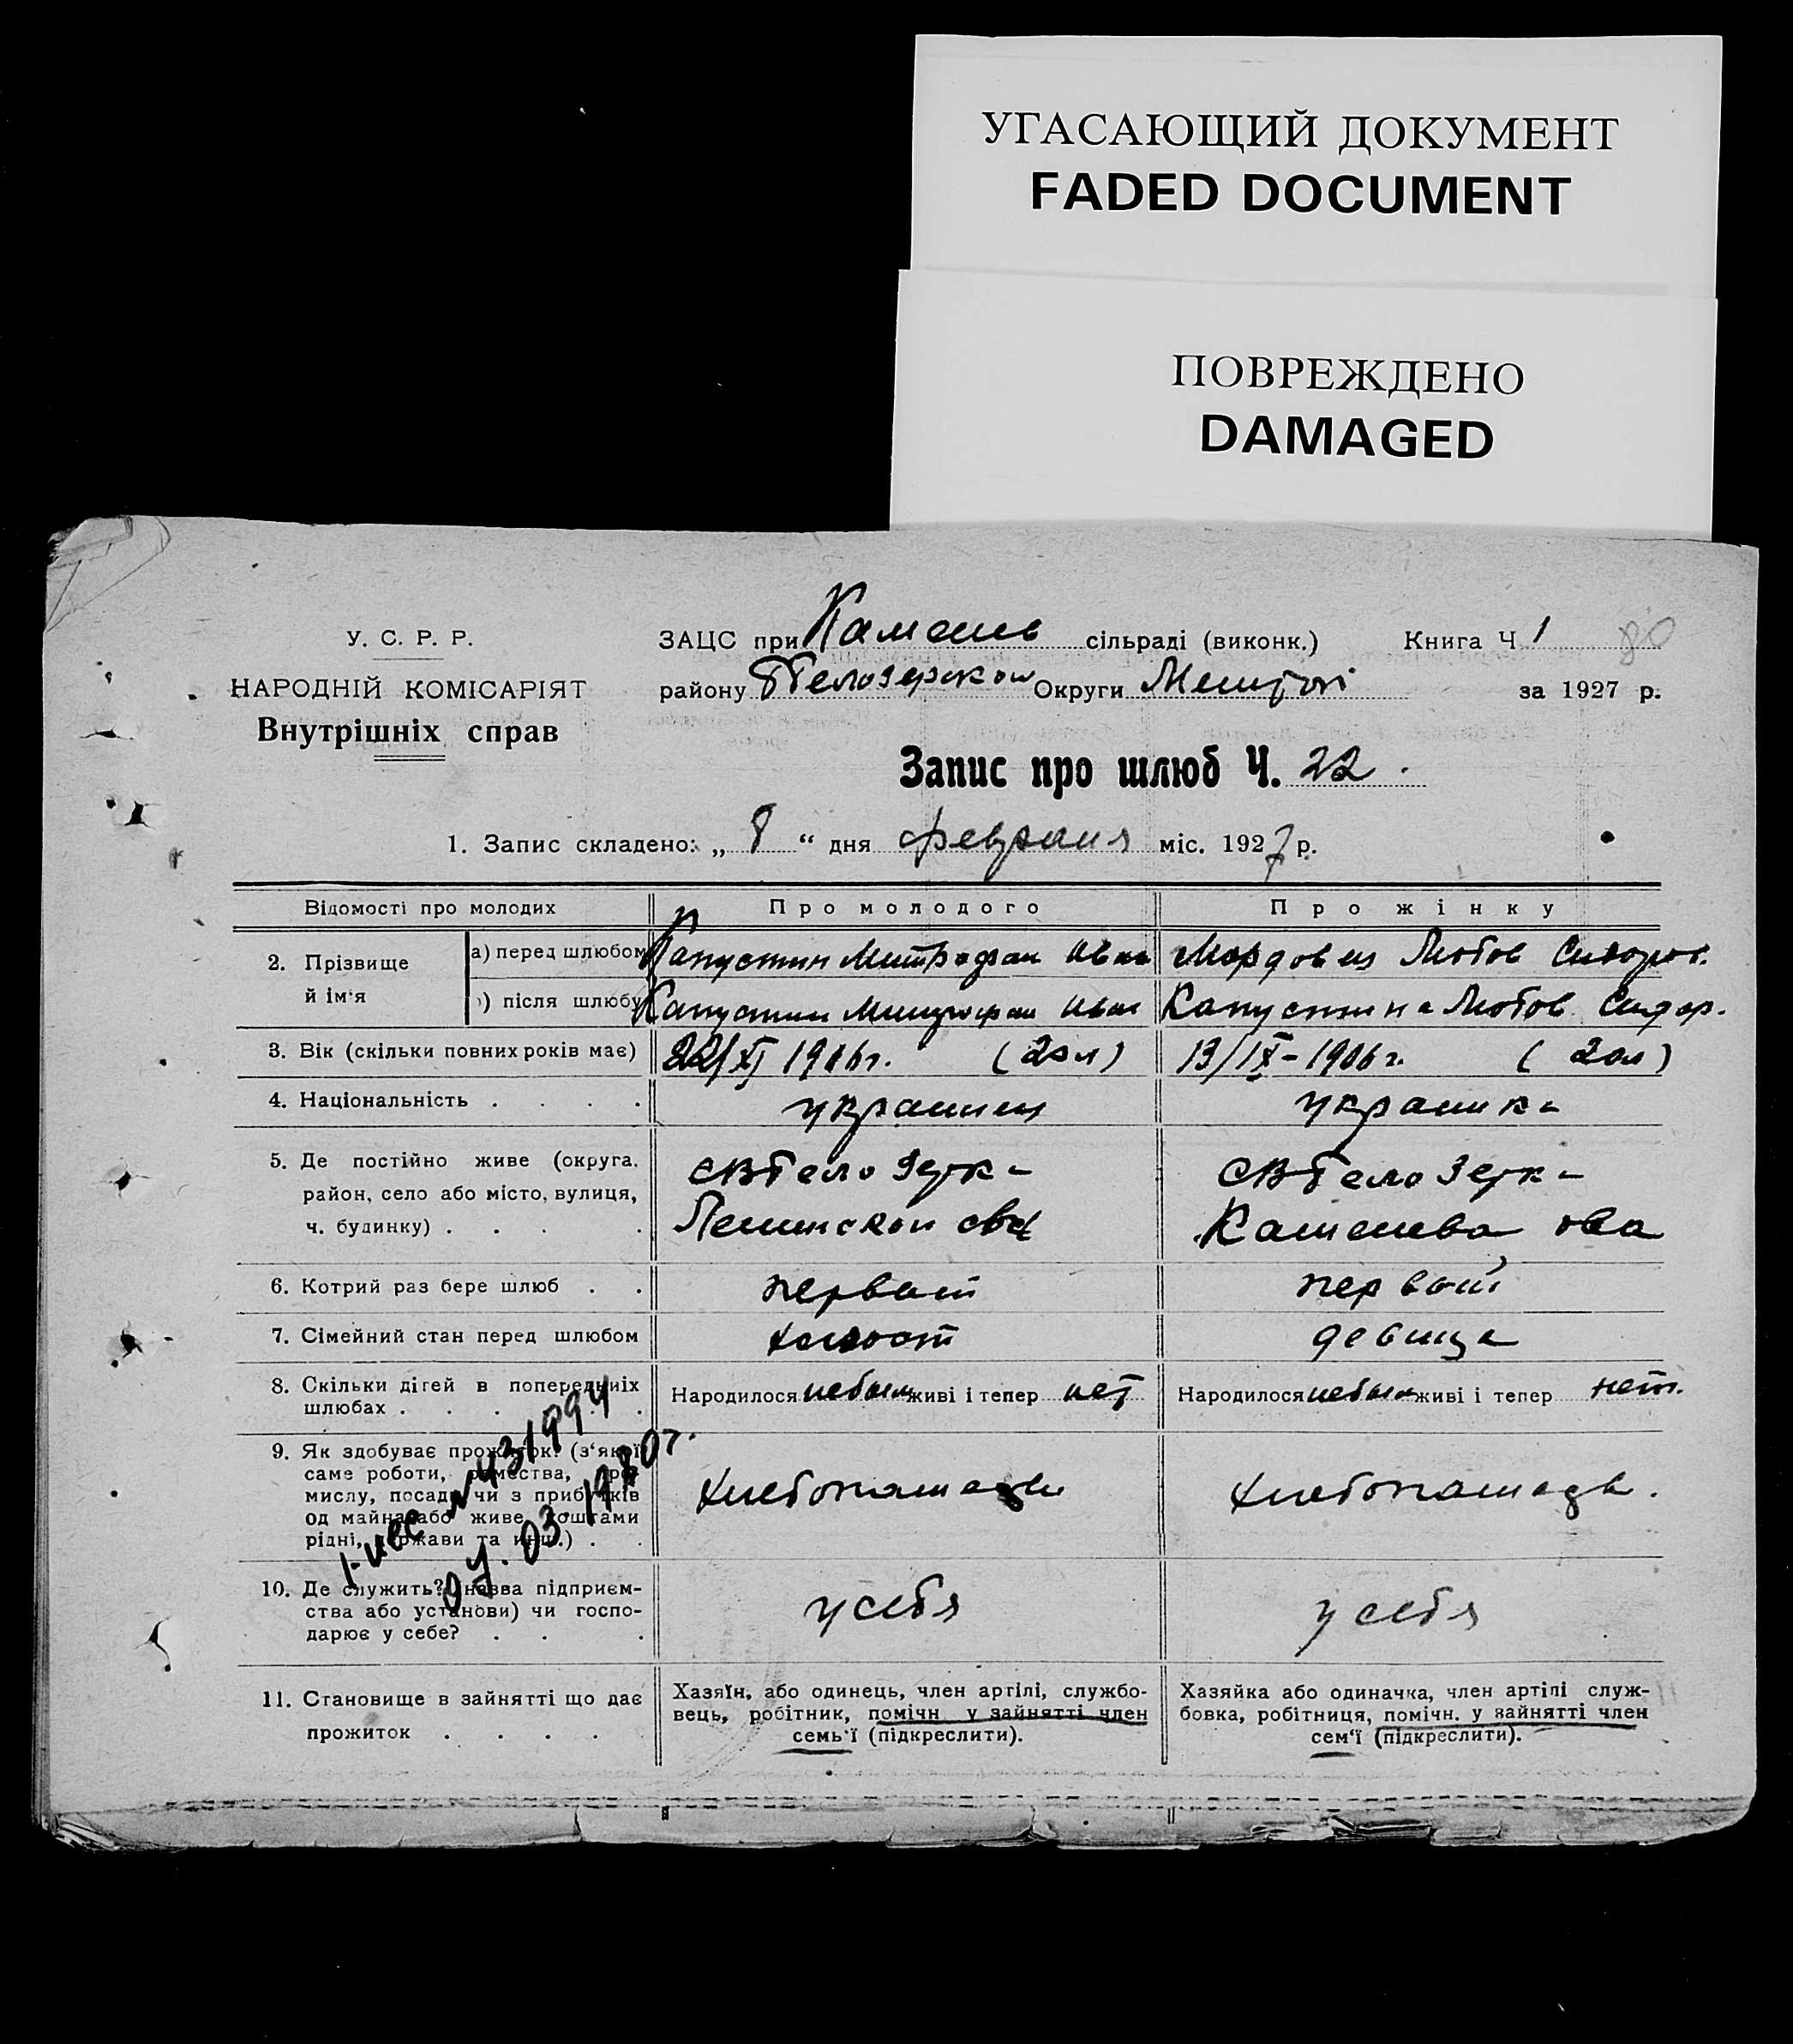 УГАСАЮЩИЙ ДОКУМЕНТ
FADED DOCUMENT
ПОВРЕЖДЕНО
DAMAGED
У. С. Р. Р.
НАРОДНІЙ КОМІСАРІЯТ
Внутрішніх справ
ЗАЦС при сільраді (виконк.) Книга Ч. 1 80
району Белозерскои Округи за 1927 р.
Запис про шлюб Ч. 22.
1. Запис складено: „ 8 “ дня февраля міс. 1927 р.
Відомості про молодих
Про молодого
Про жінку
2. Прізвище й ім'я
а) перед шлюбом
Капустин Митрофан Иван
Мордовец Любов Сидоров.
) після шлюбу
Капустин Митрофан Иван
Капустина Любов Сидор.
3. Вік (скільки повних років має)
22/XI 1906 г. (20 л)
13/IX-1906 г. (20 л)
4. Національність . . . .
украинец
украинка
5. Де постійно живе (округа,
район, село або місто, вулиця,
ч. будинку) . . . .
Белозерка
Ленинскои
Белозерка
6. Котрий раз бере шлюб . .
первый
первый
7. Сімейний стан перед шлюбом
холост
девица
8. Скільки дітей в попередніх
шлюбах . . . . .
Народилося небыли живі і тепер нет
Народилося небыли живі і тепер нет.
9. Як здобуває прожиток? (з'якої
саме роботи, ремества, про-
мислу, посади чи з прибутків
од майна або живе коштами
рідні, держави та инш.) . .
хлебопашеды
хлебопашедв.
10. Де служить? (назва підприєм-
ства або установи) чи госпо-
дарює у себе? . . .
у себя
у себя
11. Становище в зайнятті що дає
прожиток . . . .
Хазяїн, або одинець, член артілі, службо-
вець, робітник, помічн. у зайнятті член
семь'ї (підкреслити).
Хазяйка або одиначка, член артілі служ-
бовка, робітниця, помічн. у зайнятті член
сем'ї (підкреслити).
03.1980г.